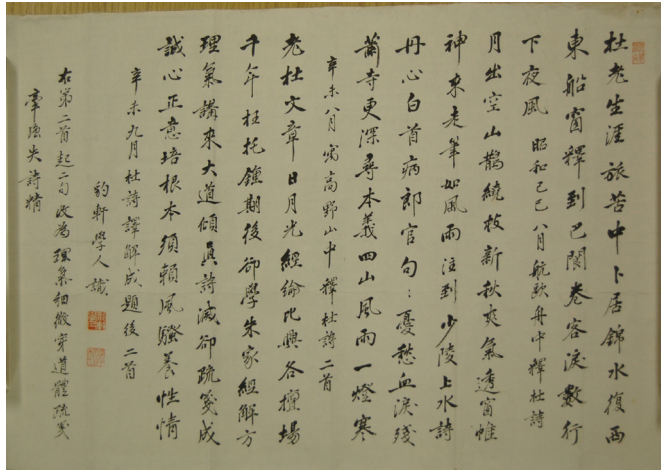 杜老生涯旅苦中卜居錦水復西
東船窗釋到巴閬卷客淚數行
下夜風 昭和己巳八月航歐舟中釋杜詩
月出空山鵲繞枝新秋爽氣透窗帷
神來走筆如風雨注到少陵上水詩
丹心白首病郎官句〻憂愁血淚殘
蕭寺更深尋本義四山風雨一燈寒
辛未八月 高野山中釋杜詩二首
老杜文章日月光經綸比興各擅場
千年枉托鍾期後卻學朱家經解方
理氣講來大道傾真詩滅卻疏箋成
誠心正意培根本須賴風騷養性情
辛未九月杜詩譯解成題後二首
豹軒學人識
右第二首起二句改為理氣細微穿道體疏箋
牽強失詩情